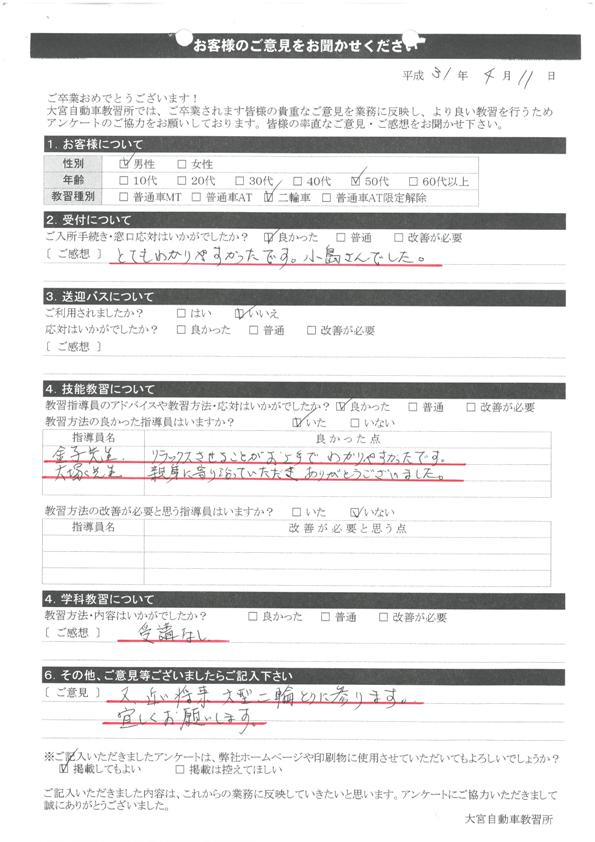 お客様のご意見をお聞かせください
平成 31 年 4 月 11 日
ご卒業おめでとうございます！
大宮自動車教習所では、ご卒業されます皆様の貴重なご意見を業務に反映し、より良い教習を行うため
アンケートのご協力をお願いしております。皆様の率直なご意見・ご感想をお聞かせ下さい。
1. お客様について
性別 ☑男性 □女性
年齢 □10代 □20代 □30代 □40代 ☑50代 □60代以上
教習種別 □普通車MT □普通車AT ☑二輪車 □普通車AT限定解除
2. 受付について
ご入所手続き・窓口応対はいかがでしたか？ ☑良かった □普通 □改善が必要
〔 ご感想 〕 とてもわかりやすかったです。小島さんでした。
3. 送迎バスについて
ご利用されましたか？ □はい ☑いいえ
応対はいかがでしたか？ □良かった □普通 □改善が必要
〔 ご感想 〕
4. 技能教習について
教習指導員のアドバイスや教習方法・応対はいかがでしたか？ ☑良かった □普通 □改善が必要
教習方法の良かった指導員はいますか？ ☑いた □いない
指導員名 良かった点
金子先生. リラックスさせることがお上手でわかりやすかったです。
大塚先生 親身に寄り添っていただきありがとうございました。
教習方法の改善が必要と思う指導員はいますか？ □いた ☑いない
指導員名 改善が必要と思う点
4. 学科教習について
教習方法・内容はいかがでしたか？ □良かった □普通 □改善が必要
〔 ご感想 〕 受講なし
6. その他、ご意見等ございましたらご記入下さい
〔 ご意見 〕 又近い将来大型二輪とりに参ります。
宜しくお願いします。
※ご記入いただきましたアンケートは、弊社ホームページや印刷物に使用させていただいてもよろしいでしょうか？
☑掲載してもよい □掲載は控えてほしい
ご記入いただきました内容は、これからの業務に反映していきたいと思います。アンケートにご協力いただきまして
誠にありがとうございました。
大宮自動車教習所